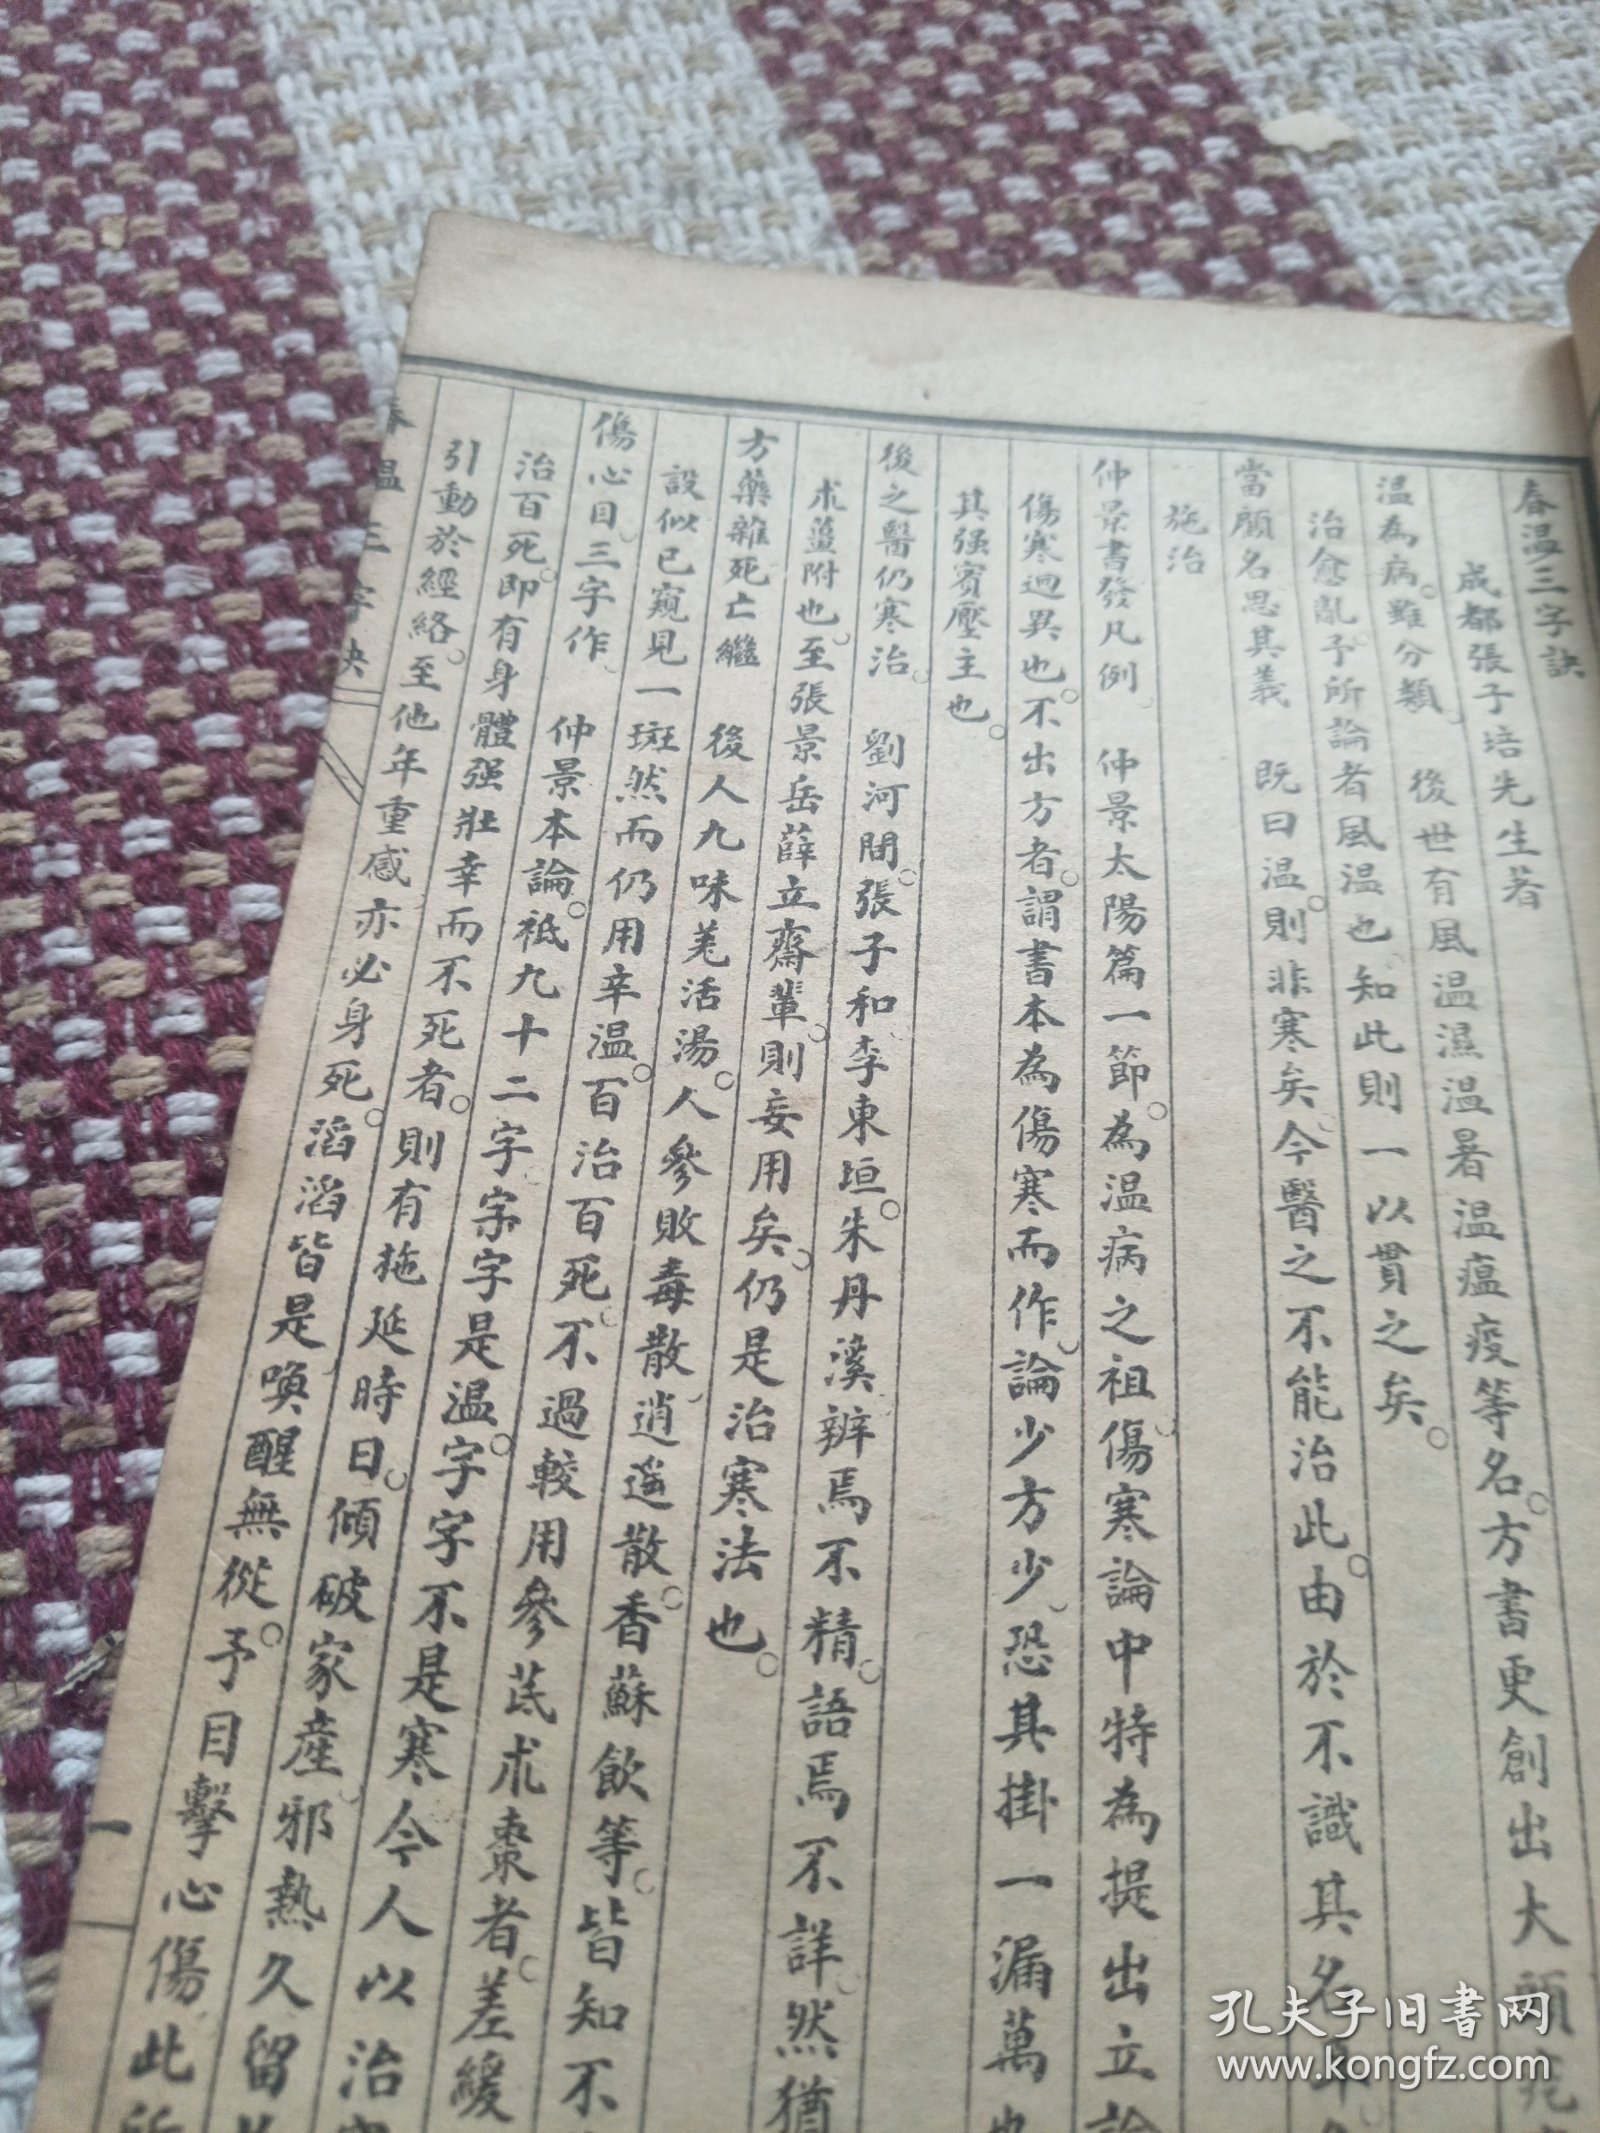 春温三字訣
成都張子培先生著
温為病。雖分類、後世有風温濕温暑温瘟疫等名。方書更創出大頭
治愈亂予所論者風温也、知此則一以貫之矣。
當顧名思其義 既曰温。則非寒矣、今醫之不能治此。由於不識其名
施治
仲景書發凡例、仲景太陽篇一節。為温病之祖、傷寒論中特為提出立論
傷寒迥異也。不出方者。謂書本為傷寒而作、論少方少、恐其掛一漏萬也
其强賓壓主也。
後之醫仍寒治、劉河間。張子和、李東垣。朱丹溪、辨焉不精。語焉不詳、然猶
未盡附也、至張景岳薛立齋輩、則妄用矣、仍是治寒法也。
方藥雜死亡繼 後人九味羌活湯。人參敗毒散、逍遥散。香蘇飲等。皆知不
設似已窺見一斑、然而仍用辛温。百治百死、不過較用參茋朮棗者。差緩
傷心目、三字作、仲景本論。祗九十二字、字字是温。字字不是寒、今人以治
治百死。即有身體强壯幸而不死者。則有拖延時日、傾破家産、邪熱久留
引動於經絡。至他年重感、亦必身死。滔滔皆是、喚醒無從。予目擊心傷、此所
春温三字訣
一
孔夫子旧書网
www.kongfz.com